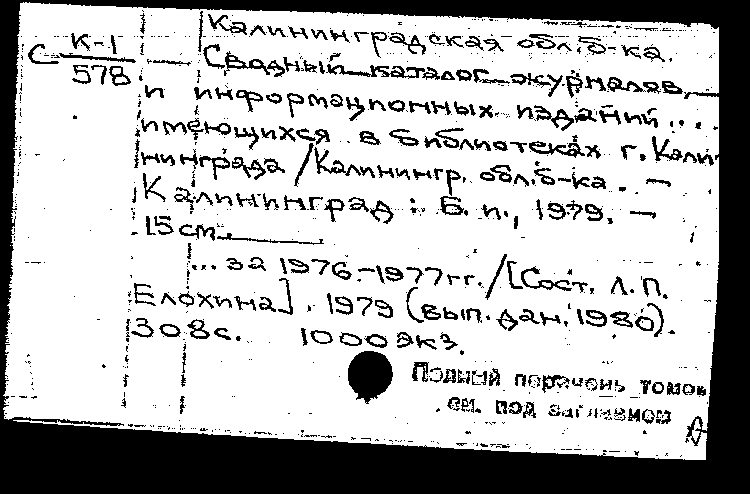 Калининградская обл.б-ка.
С К-1/578 Сводный каталог журналов,
и информационных изданий...
имеющихся в библиотеках г. Кали-
нинграда /Калинингр. обл.б-ка. —
Калининград: Б. и., 1979. —
15 см.
... за 1976.-1977гг./[Сост. Л.П.
Елохина]. 1979 (вып. дан. 1980).
308с. 1000 экз.
Полный перечень томов
см. под заглавием